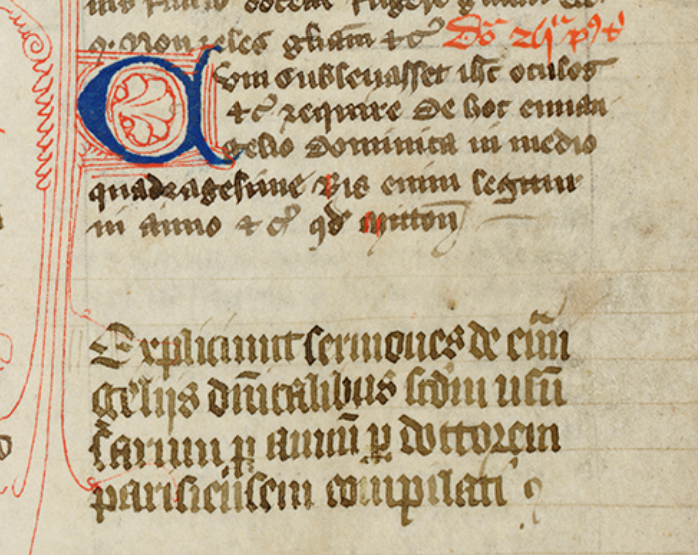 q. non zeles gliam ⁊ cͤ
Cum subleuasset ihc oculos
⁊ cͤ require de hoc ewan
gelio dominica in medio
quadragesime bis enim legitur
in anno ⁊ cͤ qd mitton
Expliciunt sermones de ewan
gelijs dn̄icalibus scdm usū
sarum p annū p doctorem
parisien̄sem compilati